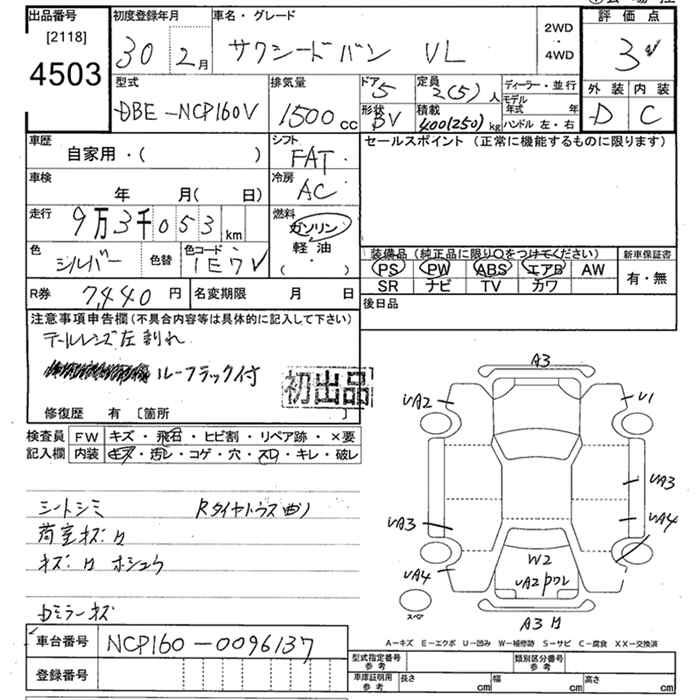 出品番号
[2118]
4503
初度登録年月
30 2月
車名・グレード
サクシードバン UL
2WD
・
4WD
評価点
外装 内装
D C
型式
DBE-NCP160V
排気量
1500cc
ドア
5
定員
2(5)人
形状
BV
積載
400(250)kg
ディーラー・並行
モデル年式 年
ハンドル 左・右
車歴
自家用・( )
シフト
FAT
セールスポイント (正常に機能するものに限ります)
車検
年 月( 日)
冷房
AC
走行
9万3千053km
燃料
ガソリン
軽油
( ・ )
色
シルバー
色替
色コード
1E7V
装備品 (純正品に限り○をつけてください)
PS PW ABS エアB AW
SR ナビ TV カワ
新車保証書
有・無
R券 7,440円
名変期限 月 日
後日品
注意事項申告欄 (不具合内容等は具体的に記入して下さい)
テールレンズ左割れ
ルーフラック付
初出品
修復歴 有 [箇所 ]
検査員記入欄
FW キズ・飛石・ヒビ割・リペア跡・×要
内装 キズ・汚レ・コゲ・穴・スレ・キレ・破レ
シートシミ
荷室キズ
Rタイヤハウス曲
キズ ホシュウ
ミラーキズ
A3
UA2 U1
UA3
UA3 UA4
UA4
W2
UA2ワレ
スペア
A3
A-キズ E-エクボ U-凹み W-補修跡 S-サビ C-腐食 XX-交換済
車台番号 NCP160-0096137
登録番号
型式指定番号 参考
類別区分番号 参考
車庫証明用 参考
長さ cm 幅 cm 高さ cm